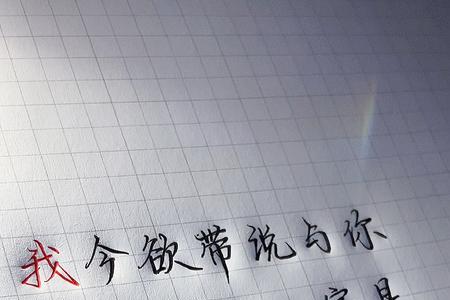 我今欲带说与你